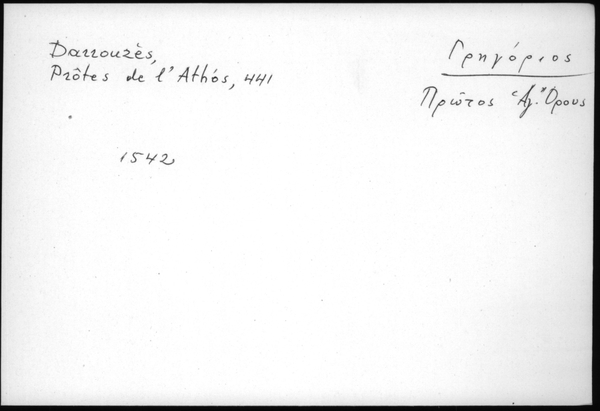 Darrouzès,
Prôtes de l'Athós, 441
Γρηγόριος
Πρῶτος Ἁγ. Ὄρους
1542